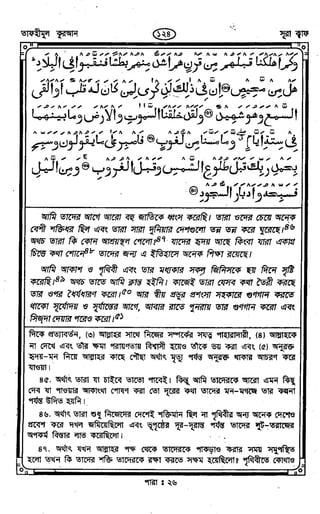 তাফহীমুল কুরআন
১২৪
সূরা ক্বাফ
وَكَمْ أَهْلَكْنَا قَبْلَهُمْ مِنْ قَرْنٍ هُمْ أَشَدُّ مِنْهُمْ بَطْشًا فَنَقَّبُوا فِي الْبِلَادِ
هَلْ مِنْ مَحِيصٍ ﴿٣٦﴾ إِنَّ فِي ذَٰلِكَ لَذِكْرَىٰ لِمَنْ كَانَ لَهُ قَلْبٌ أَوْ أَلْقَى
السَّمْعَ وَهُوَ شَهِيدٌ ﴿٣٧﴾ وَلَقَدْ خَلَقْنَا السَّمَوَاتِ وَالْأَرْضَ وَمَا بَيْنَهُمَا
فِي سِتَّةِ أَيَّامٍ وَمَا مَسَّنَا مِنْ لُغُوبٍ ﴿٣٨﴾ فَاصْبِرْ عَلَىٰ مَا يَقُولُونَ وَسَبِّحْ
بِحَمْدِ رَبِّكَ قَبْلَ طُلُوعِ الشَّمْسِ وَقَبْلَ الْغُرُوبِ ﴿٣٩﴾ وَمِنَ اللَّيْلِ
فَسَبِّحْهُ وَأَدْبَارَ السُّجُودِ ﴿٤٠﴾
আমি তাদের আগে আরো বহু জাতিকে ধ্বংস করেছি। তারা ওদের চেয়ে অনেক
বেশী শক্তিধর ছিল এবং তারা সারা দুনিয়ার দেশগুলো তন্ন তন্ন করে ঘুরেছে।৪৬
অথচ তারা কি কোন আশ্রয়স্থল পেলো?৪৭ যাদের হৃদয় আছে কিংবা যারা একাগ্র
চিত্তে কথা শোনে৪৮ তাদের জন্য এ ইতিহাসে অনেক শিক্ষা রয়েছে।
আমি আকাশ ও পৃথিবী এবং তার মধ্যকার সকল জিনিসকে ছয় দিনে সৃষ্টি
করেছি৪৯ অথচ তাতে আমি ক্লান্ত হইনি। কাজেই তারা যেসব কথা তৈরী করছে
তার ওপর ধৈর্যধারণ করো।৫০ আর স্বীয় প্রভুর প্রশংসা সহকারে গুণগান করতে
থাকো সূর্যোদয় ও সূর্যাস্তের আগে, আবার রাতে পুনরায় তার গুণগান করো এবং
সিজদা দেয়ার পরেও করো।৫১
দিকে প্রত্যাবর্তন, (৩) আল্লাহর সাথে নিজের সম্পর্কের সযত্ন পাহারাদারী, (৪) আল্লাহকে
না দেখে এবং তাঁর ক্ষমা পরায়ণতায় বিশ্বাসী হয়েও তাঁকে ভয় করা এবং (৫) অনুরক্ত
হৃদয়-মন নিয়ে আল্লাহর কাছে পৌঁছা অর্থাৎ মৃত্যু পর্যন্ত অনুরক্ত থাকার আচরণ করে
যাওয়া।
৪৫. অর্থাৎ তারা যা চাইবে তাতো পাবেই। কিন্তু আমি তাদেরকে আরো এমন কিছু
দেব যা পাওয়ার আকাংখা পোষণ করা তো দূরের কথা তাদের মন-মগজে তার কল্পনা
পর্যন্ত উদিত হয়নি।
৪৬. অর্থাৎ তারা শুধু নিজেদের দেশেই শক্তিমান ছিল না পৃথিবীর অন্য অনেক দেশেও
প্রবেশ করে দখল জমিয়েছিলো এবং ভূপৃষ্ঠের দূর-দূরান্ত পর্যন্ত তাদের লুট-তরাজের
অপকর্ম বিস্তার লাভ করেছিলো।
৪৭. অর্থাৎ যখন আল্লাহর পক্ষ থেকে তাদেরকে পাকড়াও করার সময় সমুপস্থিত
হলো তখন কি তাদের শক্তি তাদেরকে রক্ষা করতে সক্ষম হয়েছিলো? পৃথিবীতে কোথাও
পারা : ২৬